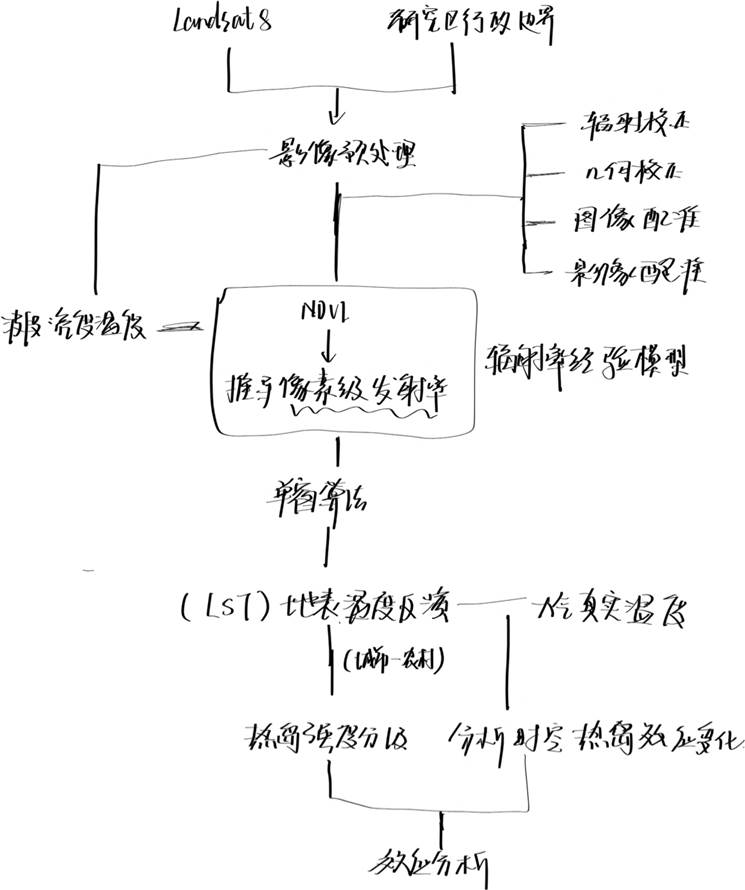 Landsat 8
研究区行政边界
影像预处理
辐射校正
几何校正
图像配准
影像配准
亮度温度
NDVI
推导像素级发射率
辐射率经验模型
单窗算法
(LST)地表温度反演
真实温度
(城市-农村)
热岛强度分级
分析时空热岛效应变化
效应分析